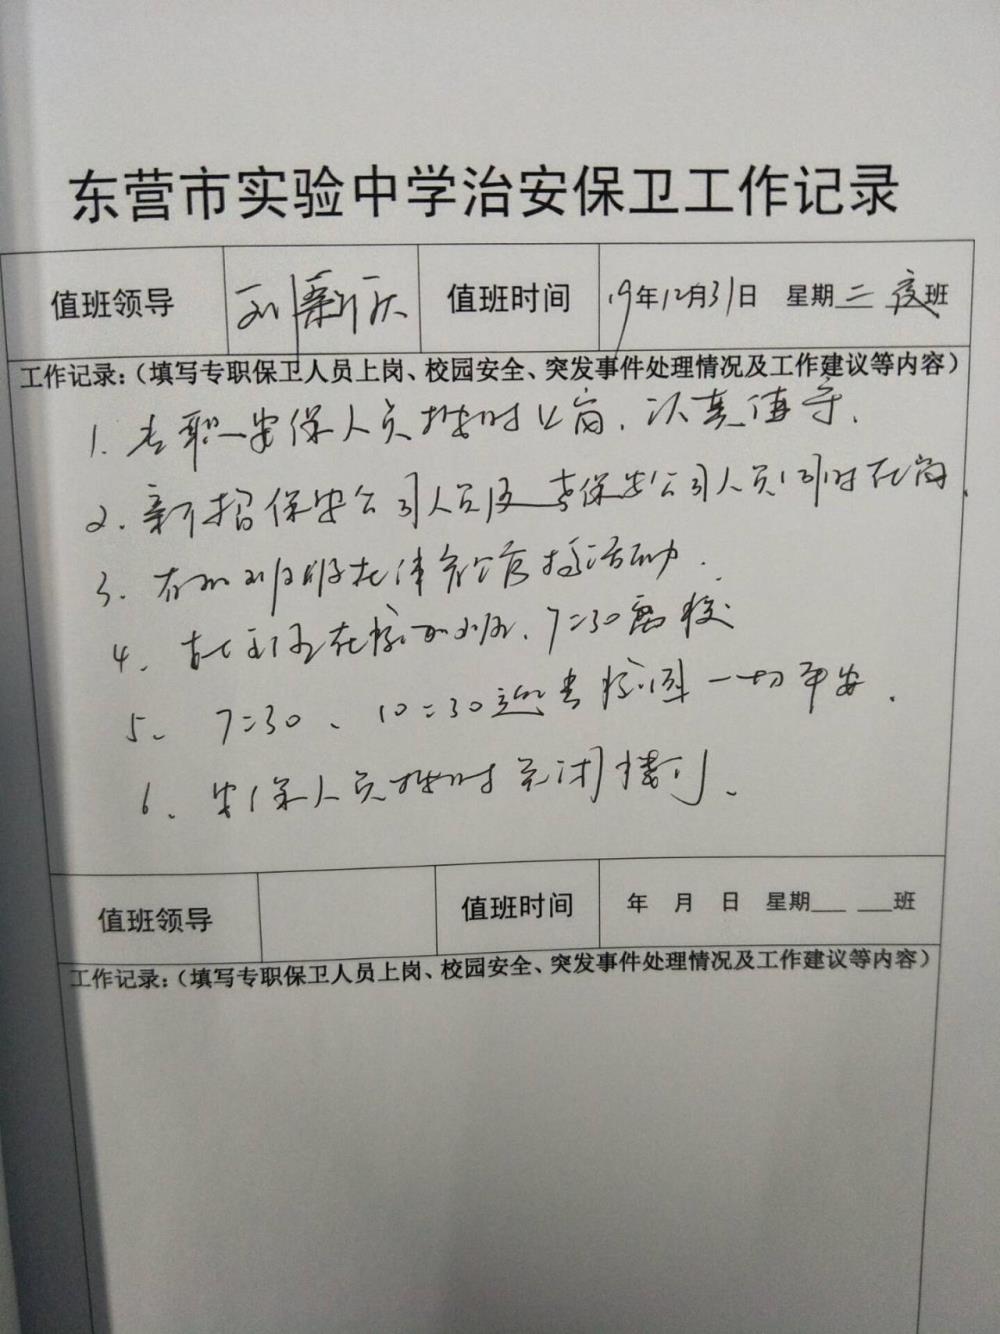 东营市实验中学治安保卫工作记录
值班领导 刘新庆 值班时间 19年12月31日 星期二 夜班
工作记录：（填写专职保卫人员上岗、校园安全、突发事件处理情况及工作建议等内容）
1. 专职安保人员按时上岗，认真值守.
2. 新招保安公司人员及老保安公司人员同时在岗.
3. 在体育馆 活动.
4. 在校 7=30离校
5. 7=30、10=30巡查校园一切平安.
6. 安保人员按时关闭楼门.
值班领导 值班时间 年 月 日 星期___ ___班
工作记录：（填写专职保卫人员上岗、校园安全、突发事件处理情况及工作建议等内容）